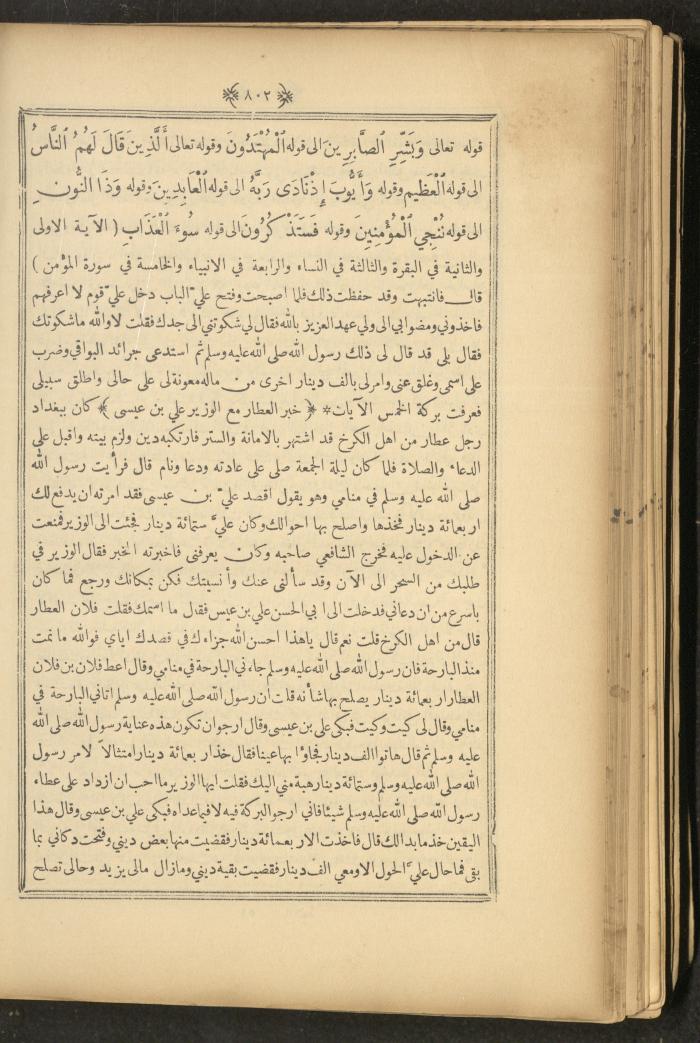 ٨٠٢
قوله تعالى وَبَشِّرِ الصَّابِرِينَ الى قوله الْمُهْتَدُونَ وقوله تعالى أَلَّذِينَ قَالَ لَهُمُ النَّاسُ
الى قوله الْعَظِيمِ وقوله وَأَيُّوبَ إِذْ نَادَى رَبَّهُ الى قوله الْعَابِدِينَ وقوله وَذَا النُّونِ
الى قوله نُنْجِي الْمُؤْمِنِينَ وقوله فَسَتَذْكُرُونَ الى قوله سُوءَ الْعَذَابِ ( الآية الاولى
والثانية في البقرة والثالثة في النساء والرابعة في الانبياء والخامسة في سورة المؤمن )
قال فانتبهت وقد حفظت ذلك فلما اصبحت وفتح عليّ الباب دخل عليّ قوم لا اعرفهم
فاخذوني ومضوا بي الى ولي عهد العزيز بالله فقال لي شكوتني الى جدك فقلت لا والله ما شكوتك
فقال بلى قد قال لى ذلك رسول الله صلى الله عليه وسلم ثم استدعى جرائد البواقي وضرب
على اسمى وغلق عنى وامر لى بالف دينار اخرى من ماله معونة لى على حالى واطلق سبيلى
فعرفت بركة الخمس الآيات * ﴿ خبر العطار مع الوزير علي بن عيسى ﴾ كان ببغداد
رجل عطار من اهل الكرخ قد اشتهر بالامانة والستر فارتكبه دين ولزم بيته واقبل على
الدعاء والصلاة فلما كان ليلة الجمعة صلى على عادته ودعا ونام قال فرأيت رسول الله
صلى الله عليه وسلم في منامي وهو يقول اقصد عليّ بن عيسى فقد امرته ان يدفع لك
اربعمائة دينار فخذها واصلح بها احوالك وكان عليَّ ستمائة دينار فجئت الى الوزير فمنعت
عن الدخول عليه فخرج الشافعي صاحبه وكان يعرفنى فاخبرته الخبر فقال الوزير في
طلبك من السحر الى الآن وقد سألنى عنك وأنسيتك فكن بمكانك ورجع فما كان
باسرع من ان دعاني فدخلت الى ابي الحسن علي بن عيس فقال ما اسمك فقلت فلان العطار
قال من اهل الكرخ قلت نعم قال يا هذا احسن الله جزاءك في قصدك اياي فوالله ما نمت
منذ البارحة فان رسول الله صلى الله عليه وسلم جاءني البارحة في منامي وقال اعط فلان بن فلان
العطار اربعمائة دينار يصلح بها شأنه قلت ان رسول الله صلى الله عليه وسلم اتاني البارحة في
منامي وقال لى كيت وكيت فبكى على بن عيسى وقال ارجو ان تكون هذه عناية رسول الله صلى الله
عليه وسلم ثم قال هاتوا الف دينار فجاؤا بها عينا فقال خذ اربعمائة دينار امتثالا لامر رسول
الله صلى الله عليه وسلم وستمائة دينار هبة مني اليك فقلت ايها الوزير ما احب ان ازداد على عطاء
رسول الله صلى الله عليه وسلم شيئا فاني ارجو البركة فيه لا فيما عداه فبكى علي بن عيسى وقال هذا
اليقين خذ ما بدا لك قال فاخذت الاربعمائة دينار فقضيت منها بعض ديني وفتحت دكاني بما
بقى فما حال عليَّ الحول الا ومعي الف دينار فقضيت بقية ديني وما زال مالى يزيد وحالى تصلح